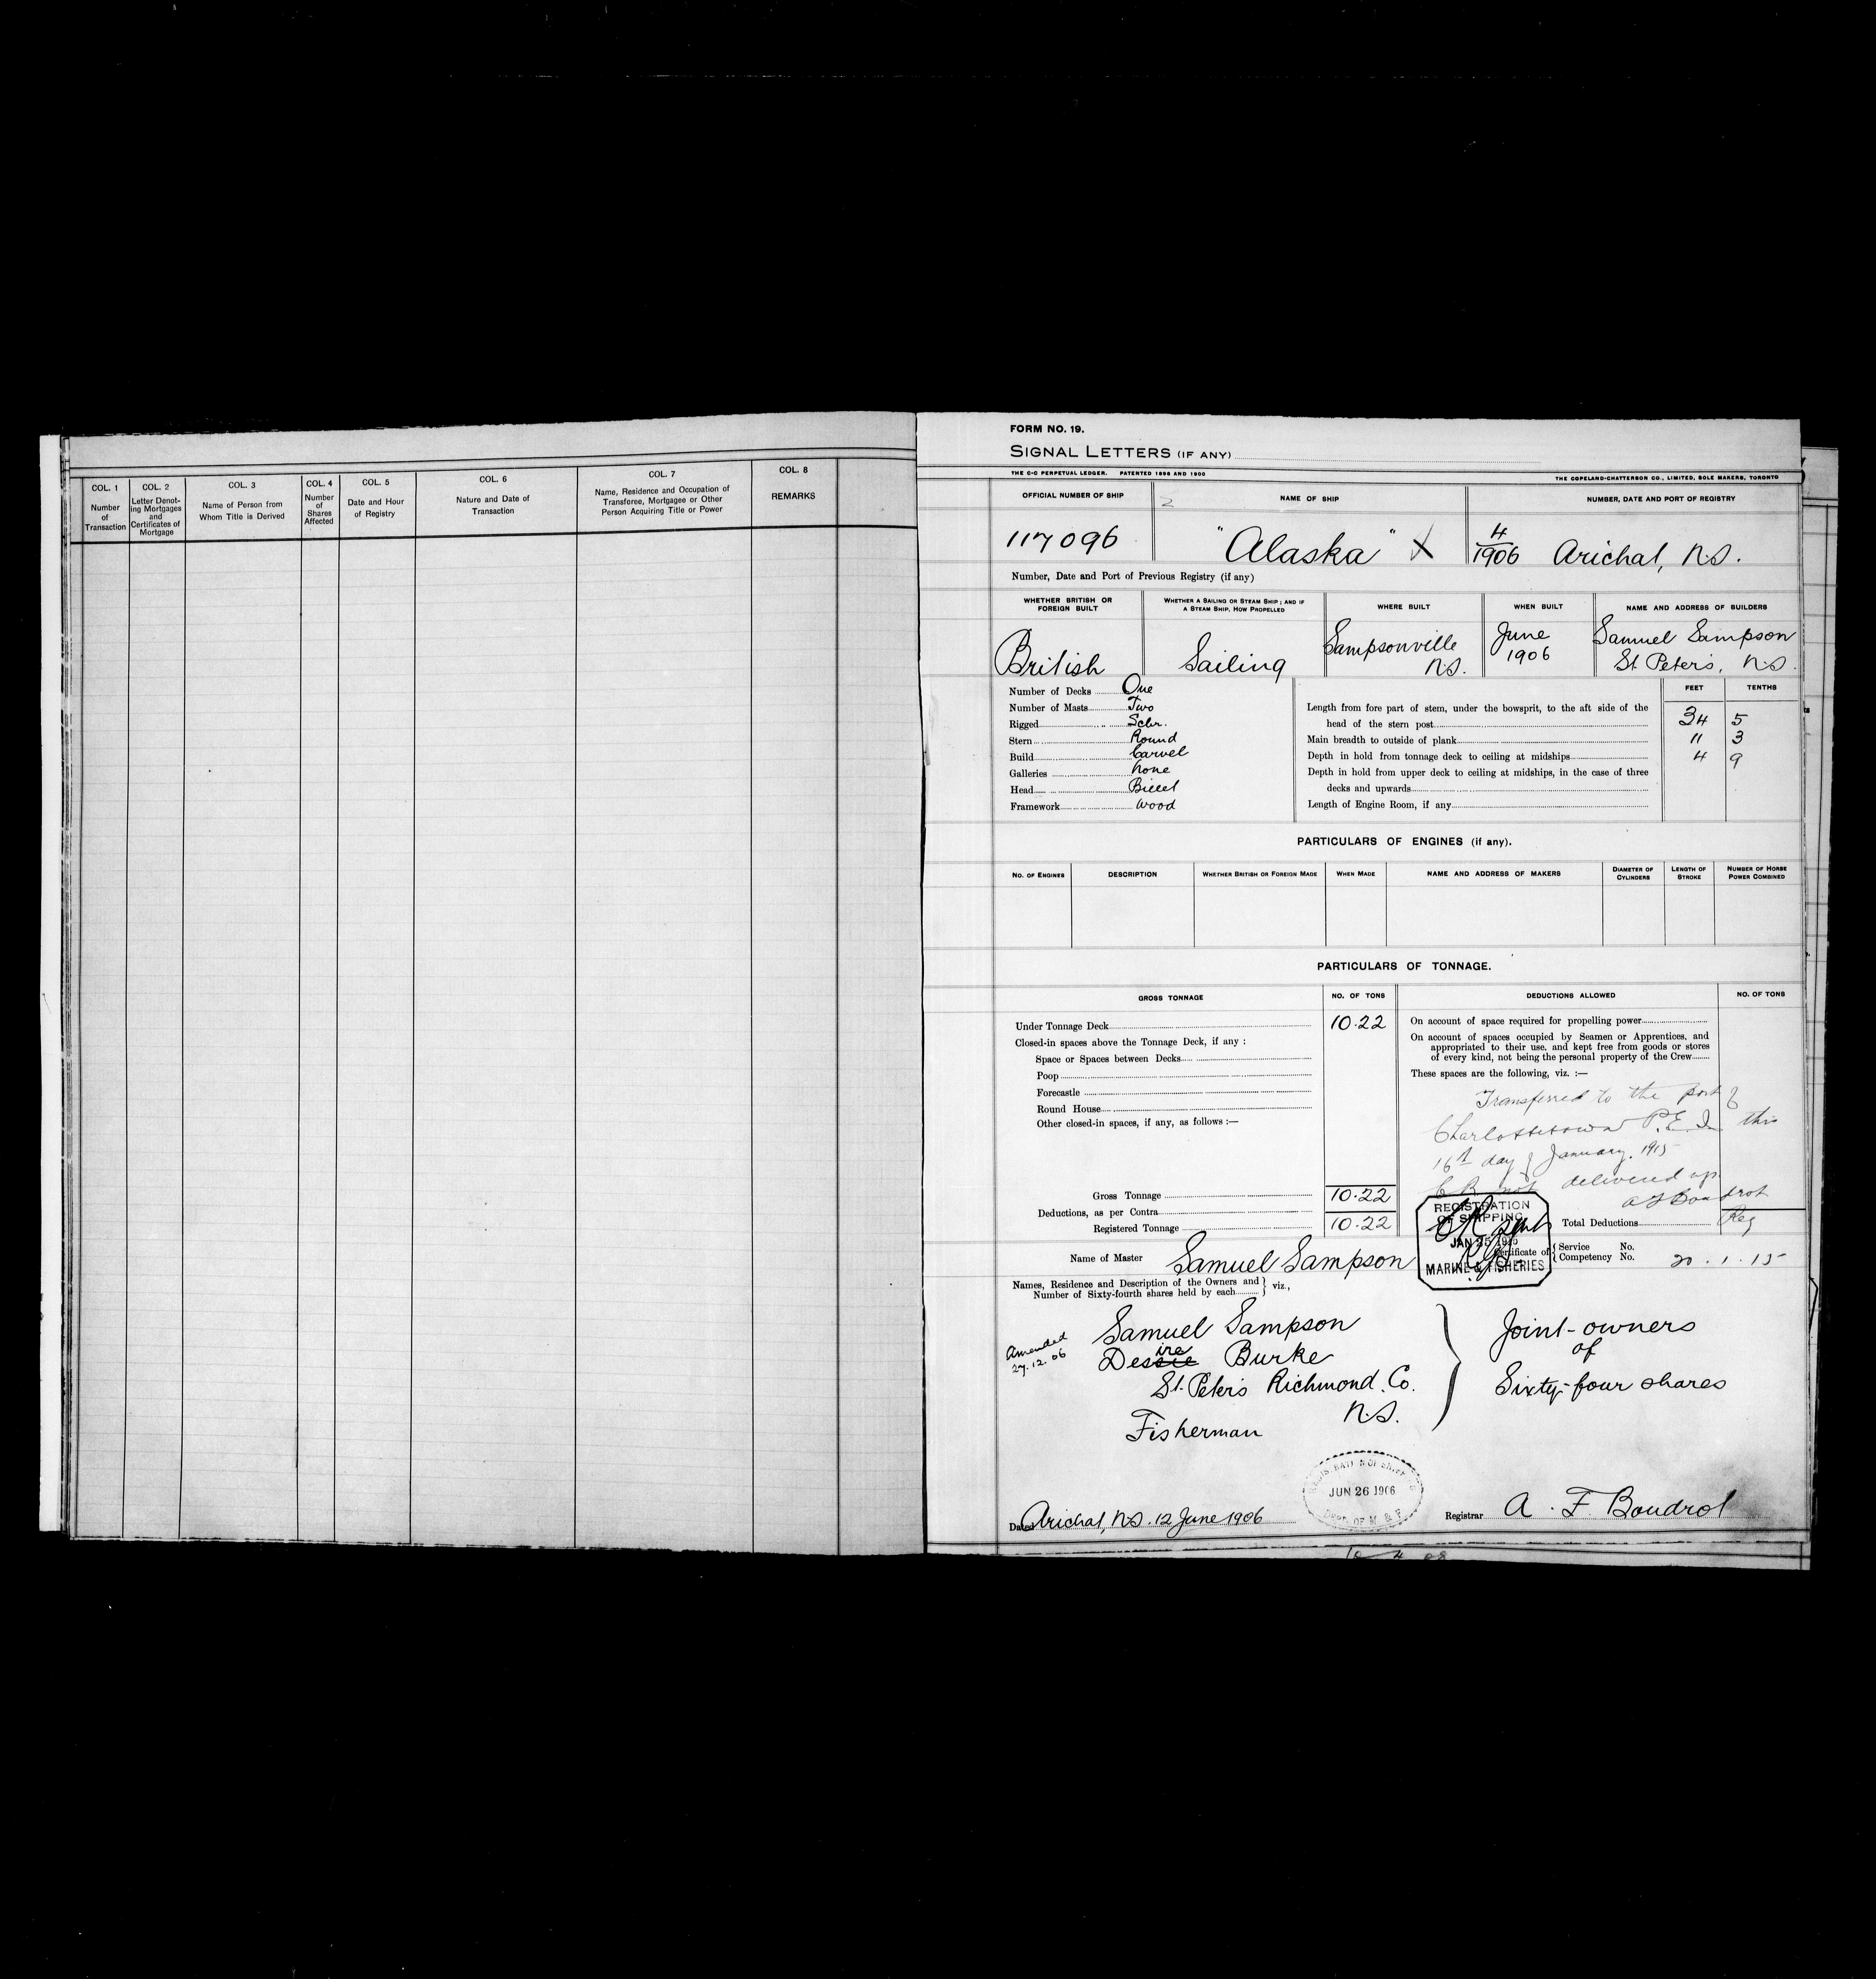 COL. 1
Number
of
Transaction
COL. 2
Letter Denot-
ing Mortgages
and
Certificates of
Mortgage
COL. 3
Name of Person from
Whom Title is Derived
COL. 4
Number
of
Shares
Affected
COL. 5
Date and Hour
of Registry
COL. 6
Nature and Date of
Transaction
COL. 7
Name, Residence and Occupation of
Transferee, Mortgagee or Other
Person Acquiring Title or Power
COL. 8
REMARKS
FORM NO. 19.
SIGNAL LETTERS (IF ANY)
THE C-C PERPETUAL LEDGER. PATENTED 1898 AND 1900
THE COPELAND-CHATTERSON CO., LIMITED, SOLE MAKERS, TORONTO
OFFICIAL NUMBER OF SHIP
NAME OF SHIP
NUMBER, DATE AND PORT OF REGISTRY
117096
"Alaska" X
4/1906 Arichat, N.S.
Number, Date and Port of Previous Registry (if any)
WHETHER BRITISH OR
FOREIGN BUILT
WHETHER A SAILING OR STEAM SHIP; AND IF
A STEAM SHIP, HOW PROPELLED
WHERE BUILT
WHEN BUILT
NAME AND ADDRESS OF BUILDERS
British
Sailing
Sampsonville
N.S.
June
1906
Samuel Sampson
St. Peter's, N.S.
Number of Decks One
Number of Masts Two
Rigged Schr.
Stern Round
Build Carvel
Galleries None
Head Billet
Framework Wood
FEET TENTHS
Length from fore part of stem, under the bowsprit, to the aft side of the
head of the stern post 34 5
Main breadth to outside of plank 11 3
Depth in hold from tonnage deck to ceiling at midships 4 9
Depth in hold from upper deck to ceiling at midships, in the case of three
decks and upwards
Length of Engine Room, if any
PARTICULARS OF ENGINES (if any).
NO. OF ENGINES
DESCRIPTION
WHETHER BRITISH OR FOREIGN MADE
WHEN MADE
NAME AND ADDRESS OF MAKERS
DIAMETER OF
CYLINDERS
LENGTH OF
STROKE
NUMBER OF HORSE
POWER COMBINED
PARTICULARS OF TONNAGE.
GROSS TONNAGE
NO. OF TONS
DEDUCTIONS ALLOWED
NO. OF TONS
Under Tonnage Deck 10.22
Closed-in spaces above the Tonnage Deck, if any :
Space or Spaces between Decks
Poop
Forecastle
Round House
Other closed-in spaces, if any, as follows :—
Gross Tonnage 10.22
Deductions, as per Contra
Registered Tonnage 10.22
On account of space required for propelling power
On account of spaces occupied by Seamen or Apprentices, and
appropriated to their use, and kept free from goods or stores
of every kind, not being the personal property of the Crew
These spaces are the following, viz. :—
Transferred to the port of
Charlottetown P.E.I. this
16th day of January. 1915
C.R. not delivered up.
A F Boudrot
Reg
Total Deductions
REGISTRATION
OF SHIPPING
JAN 25 1915
MARINE & FISHERIES
Name of Master Samuel Sampson
Certificate of
Service No.
Competency No.
20.1.15
Names, Residence and Description of the Owners and
Number of Sixty-fourth shares held by each
viz.,
Amended
27.12.06
Samuel Sampson
Dessie ire Burke
St. Peter's Richmond. Co.
N.S.
Fisherman
Joint-owners
of
Sixty-four shares
JUN 26 1906
DEPT. OF M & F
Dated Arichat, N.S. 12 June 1906
Registrar A. F. Boudrot